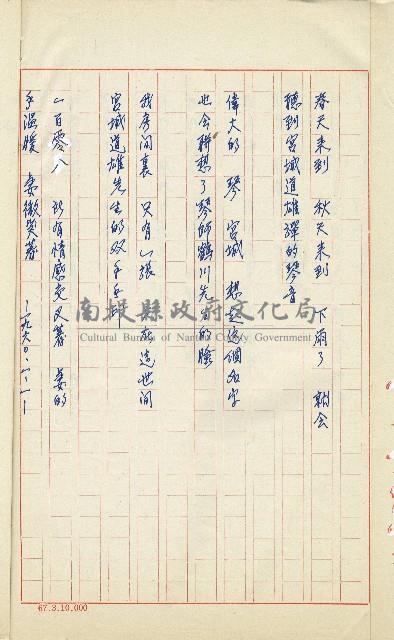 春天来到 秋天来到 下雨了 就会
聽到宮城道雄彈的琴音
偉大的 琴 宮城 想起這個名字
也会聯想了琴師鶴川先生的臉
我房间裏 只有一張 立这世间
宮城道雄先生的双手手
一百零八 所有情感交叉著 妾的
手温暖 妾微笑著 一九六〇.一.一
南投縣政府文化局
Cultural Bureau of Nantou County Government
67.3.10,000